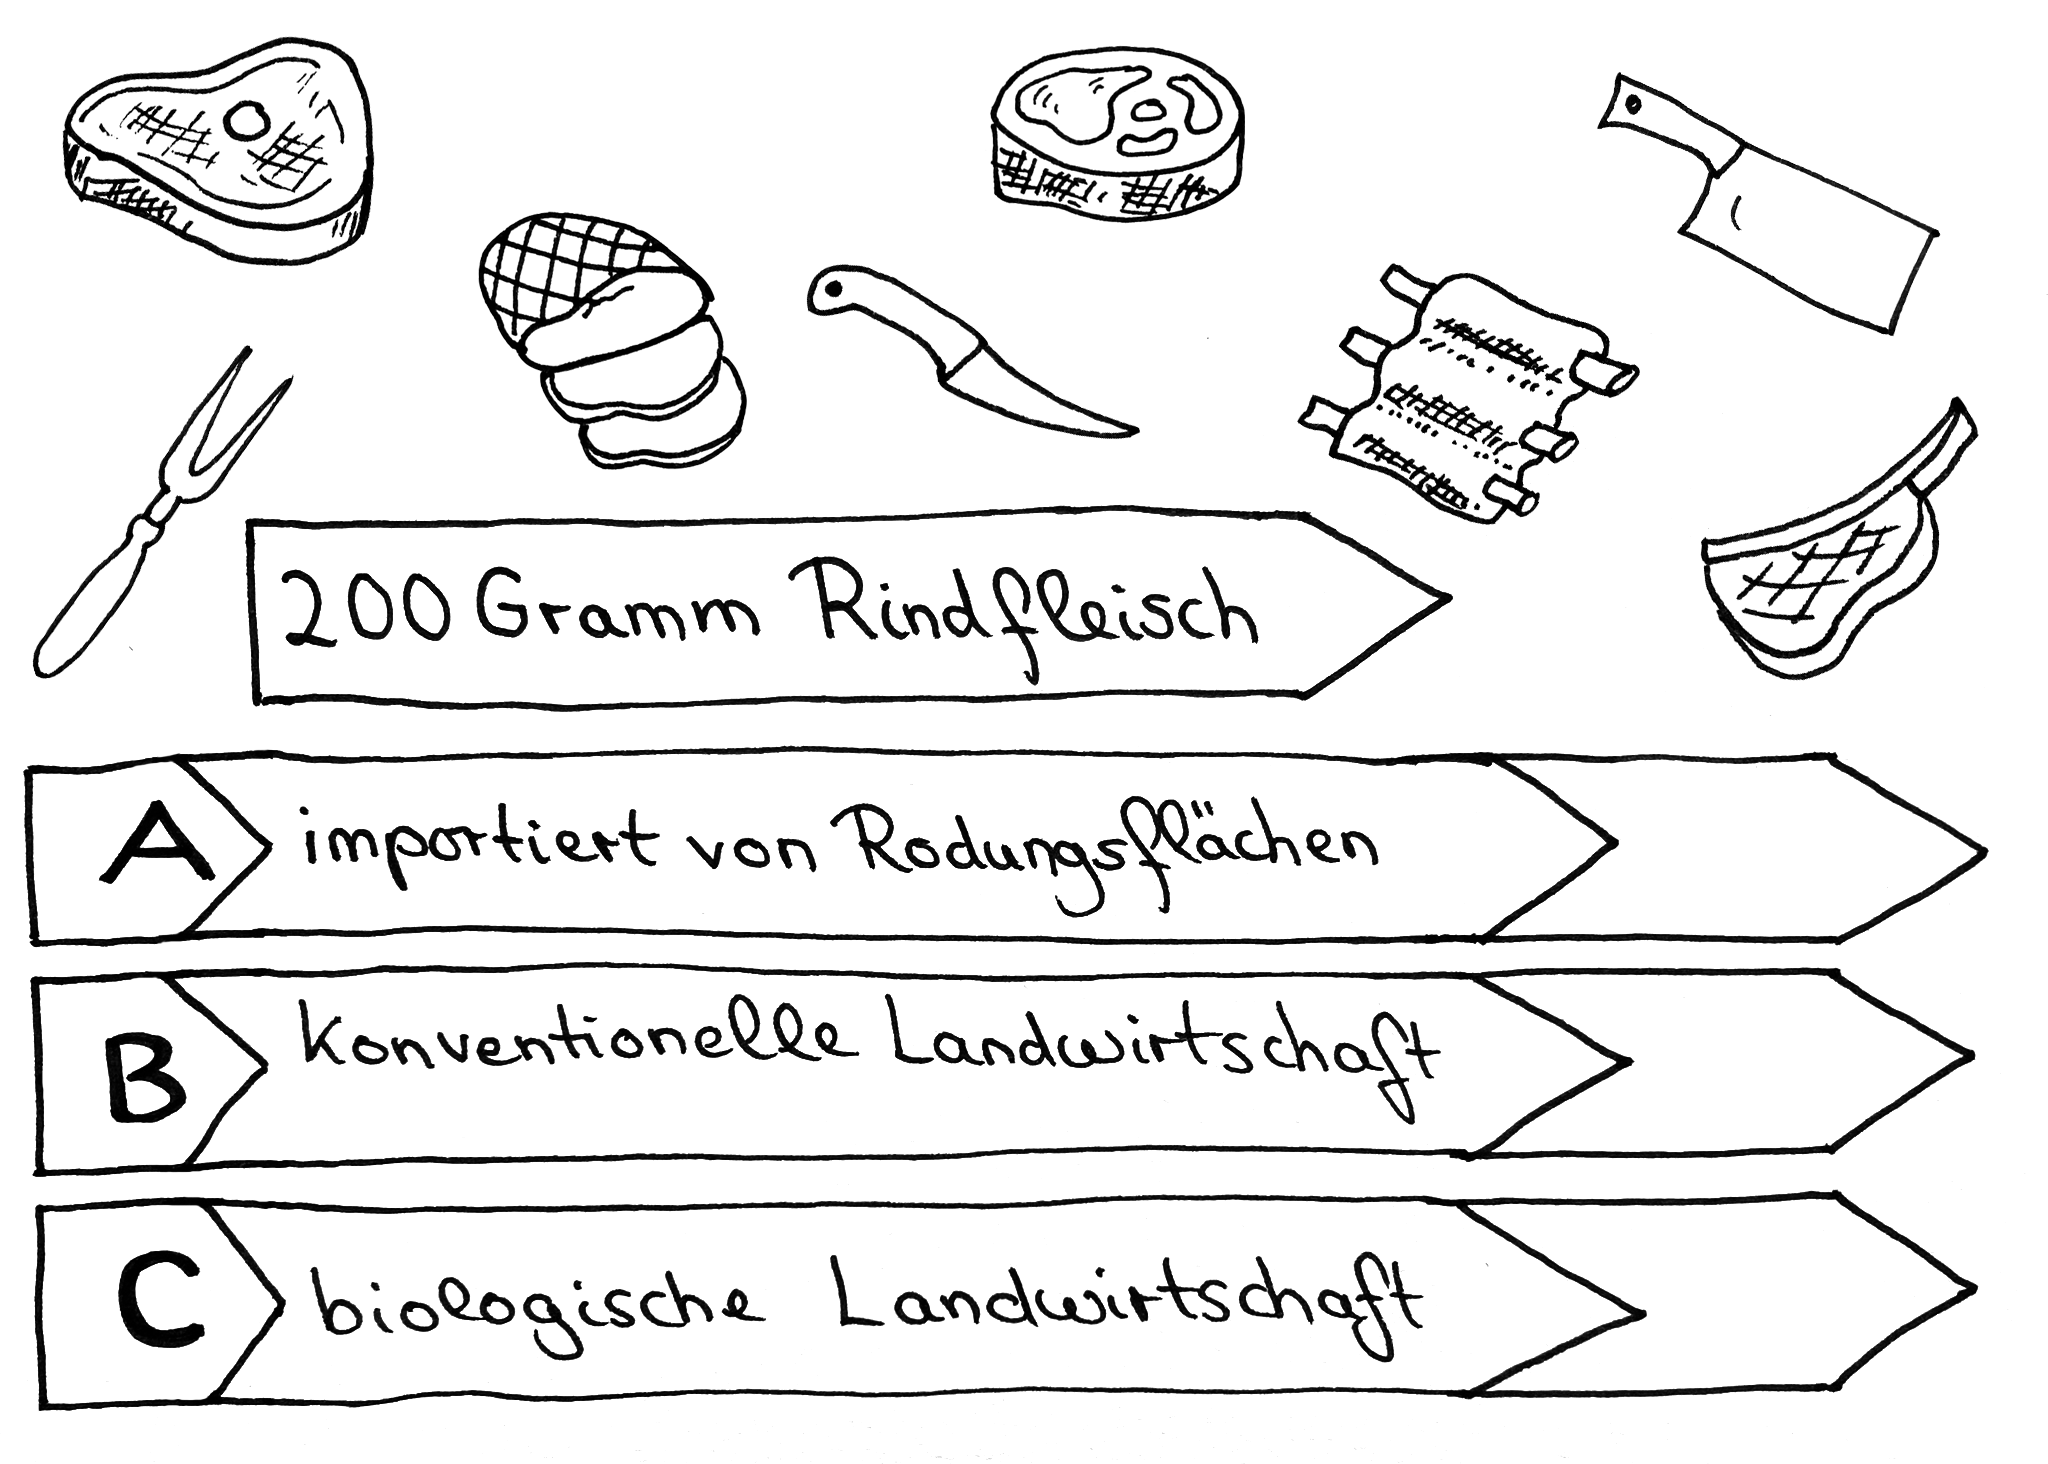 200 Gramm Rindfleisch
A importiert von Rodungsflächen
B konventionelle Landwirtschaft
C biologische Landwirtschaft